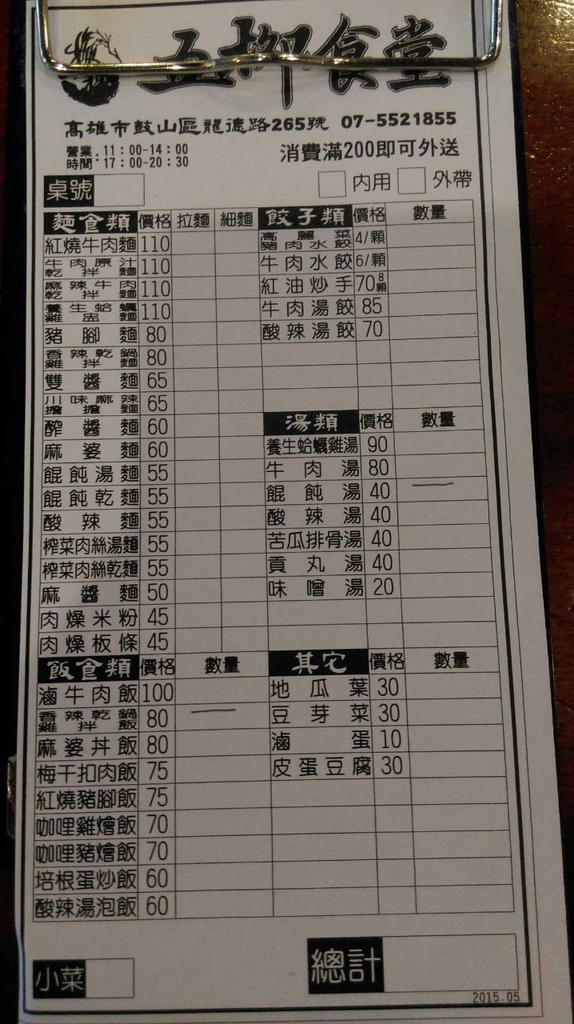 五柳食堂
高雄市鼓山區龍德路265號 07-5521855
營業 11:00-14:00
時間:17:00-20:30
消費滿200即可外送
桌號 內用 外帶
麵食類 價格 拉麵 細麵
紅燒牛肉麵 110
牛肉原汁乾拌麵 110
麻辣牛肉乾拌麵 110
養生蛤蠣雞湯麵 110
豬腳麵 80
香辣乾鍋雞拌麵 80
雙醬麵 65
川味麻辣擔擔麵 65
酢醬麵 60
麻婆麵 60
餛飩湯麵 55
餛飩乾麵 55
酸辣麵 55
榨菜肉絲湯麵 55
榨菜肉絲乾麵 55
麻醬麵 50
肉燥米粉 45
肉燥板條 45
餃子類 價格 數量
高麗菜豬肉水餃 4/顆
牛肉水餃 6/顆
紅油炒手 70 8顆
牛肉湯餃 85
酸辣湯餃 70
湯類 價格 數量
養生蛤蠣雞湯 90
牛肉湯 80
餛飩湯 40
酸辣湯 40
苦瓜排骨湯 40
貢丸湯 40
味噌湯 20
飯食類 價格 數量
滷牛肉飯 100
香辣乾鍋雞拌飯 80
麻婆丼飯 80
梅干扣肉飯 75
紅燒豬腳飯 75
咖哩雞燴飯 70
咖哩豬燴飯 70
培根蛋炒飯 60
酸辣湯泡飯 60
其它 價格 數量
地瓜葉 30
豆芽菜 30
滷蛋 10
皮蛋豆腐 30
小菜
總計
2015.05